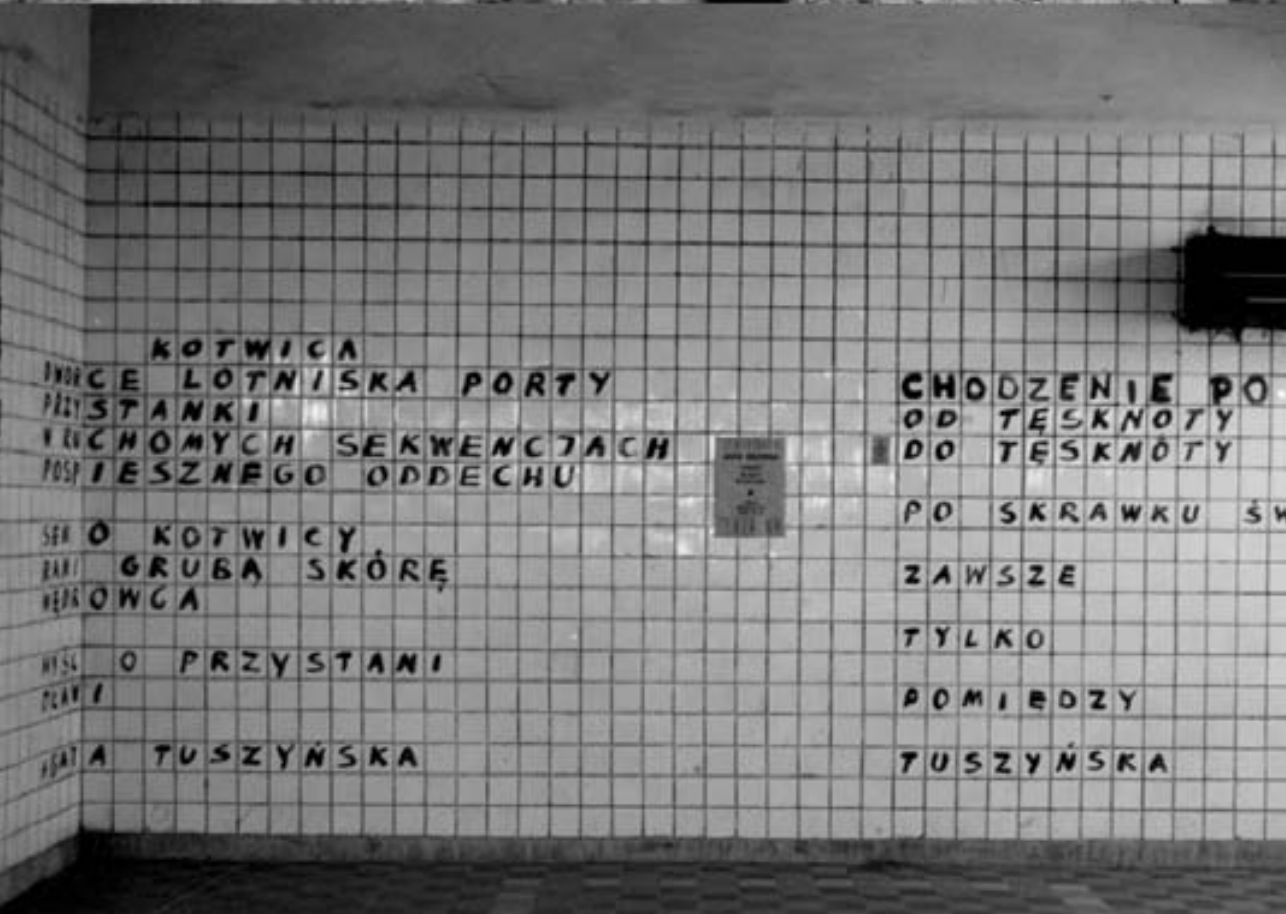 KOTWICA
DWORCE LOTNISKA PORTY
PRZYSTANKI
W RUCHOMYCH SEKWENCJACH
POSPIESZNEGO ODDECHU
O KOTWICY
RANI GRUBĄ SKÓRĘ
WĘDROWCA
MYŚL O PRZYSTANI
DŁAWI
AGATA TUSZYŃSKA
CHODZENIE PO
OD TĘSKNOTY
DO TĘSKNOTY
PO SKRAWKU
ZAWSZE
TYLKO
POMIĘDZY
TUSZYŃSKA